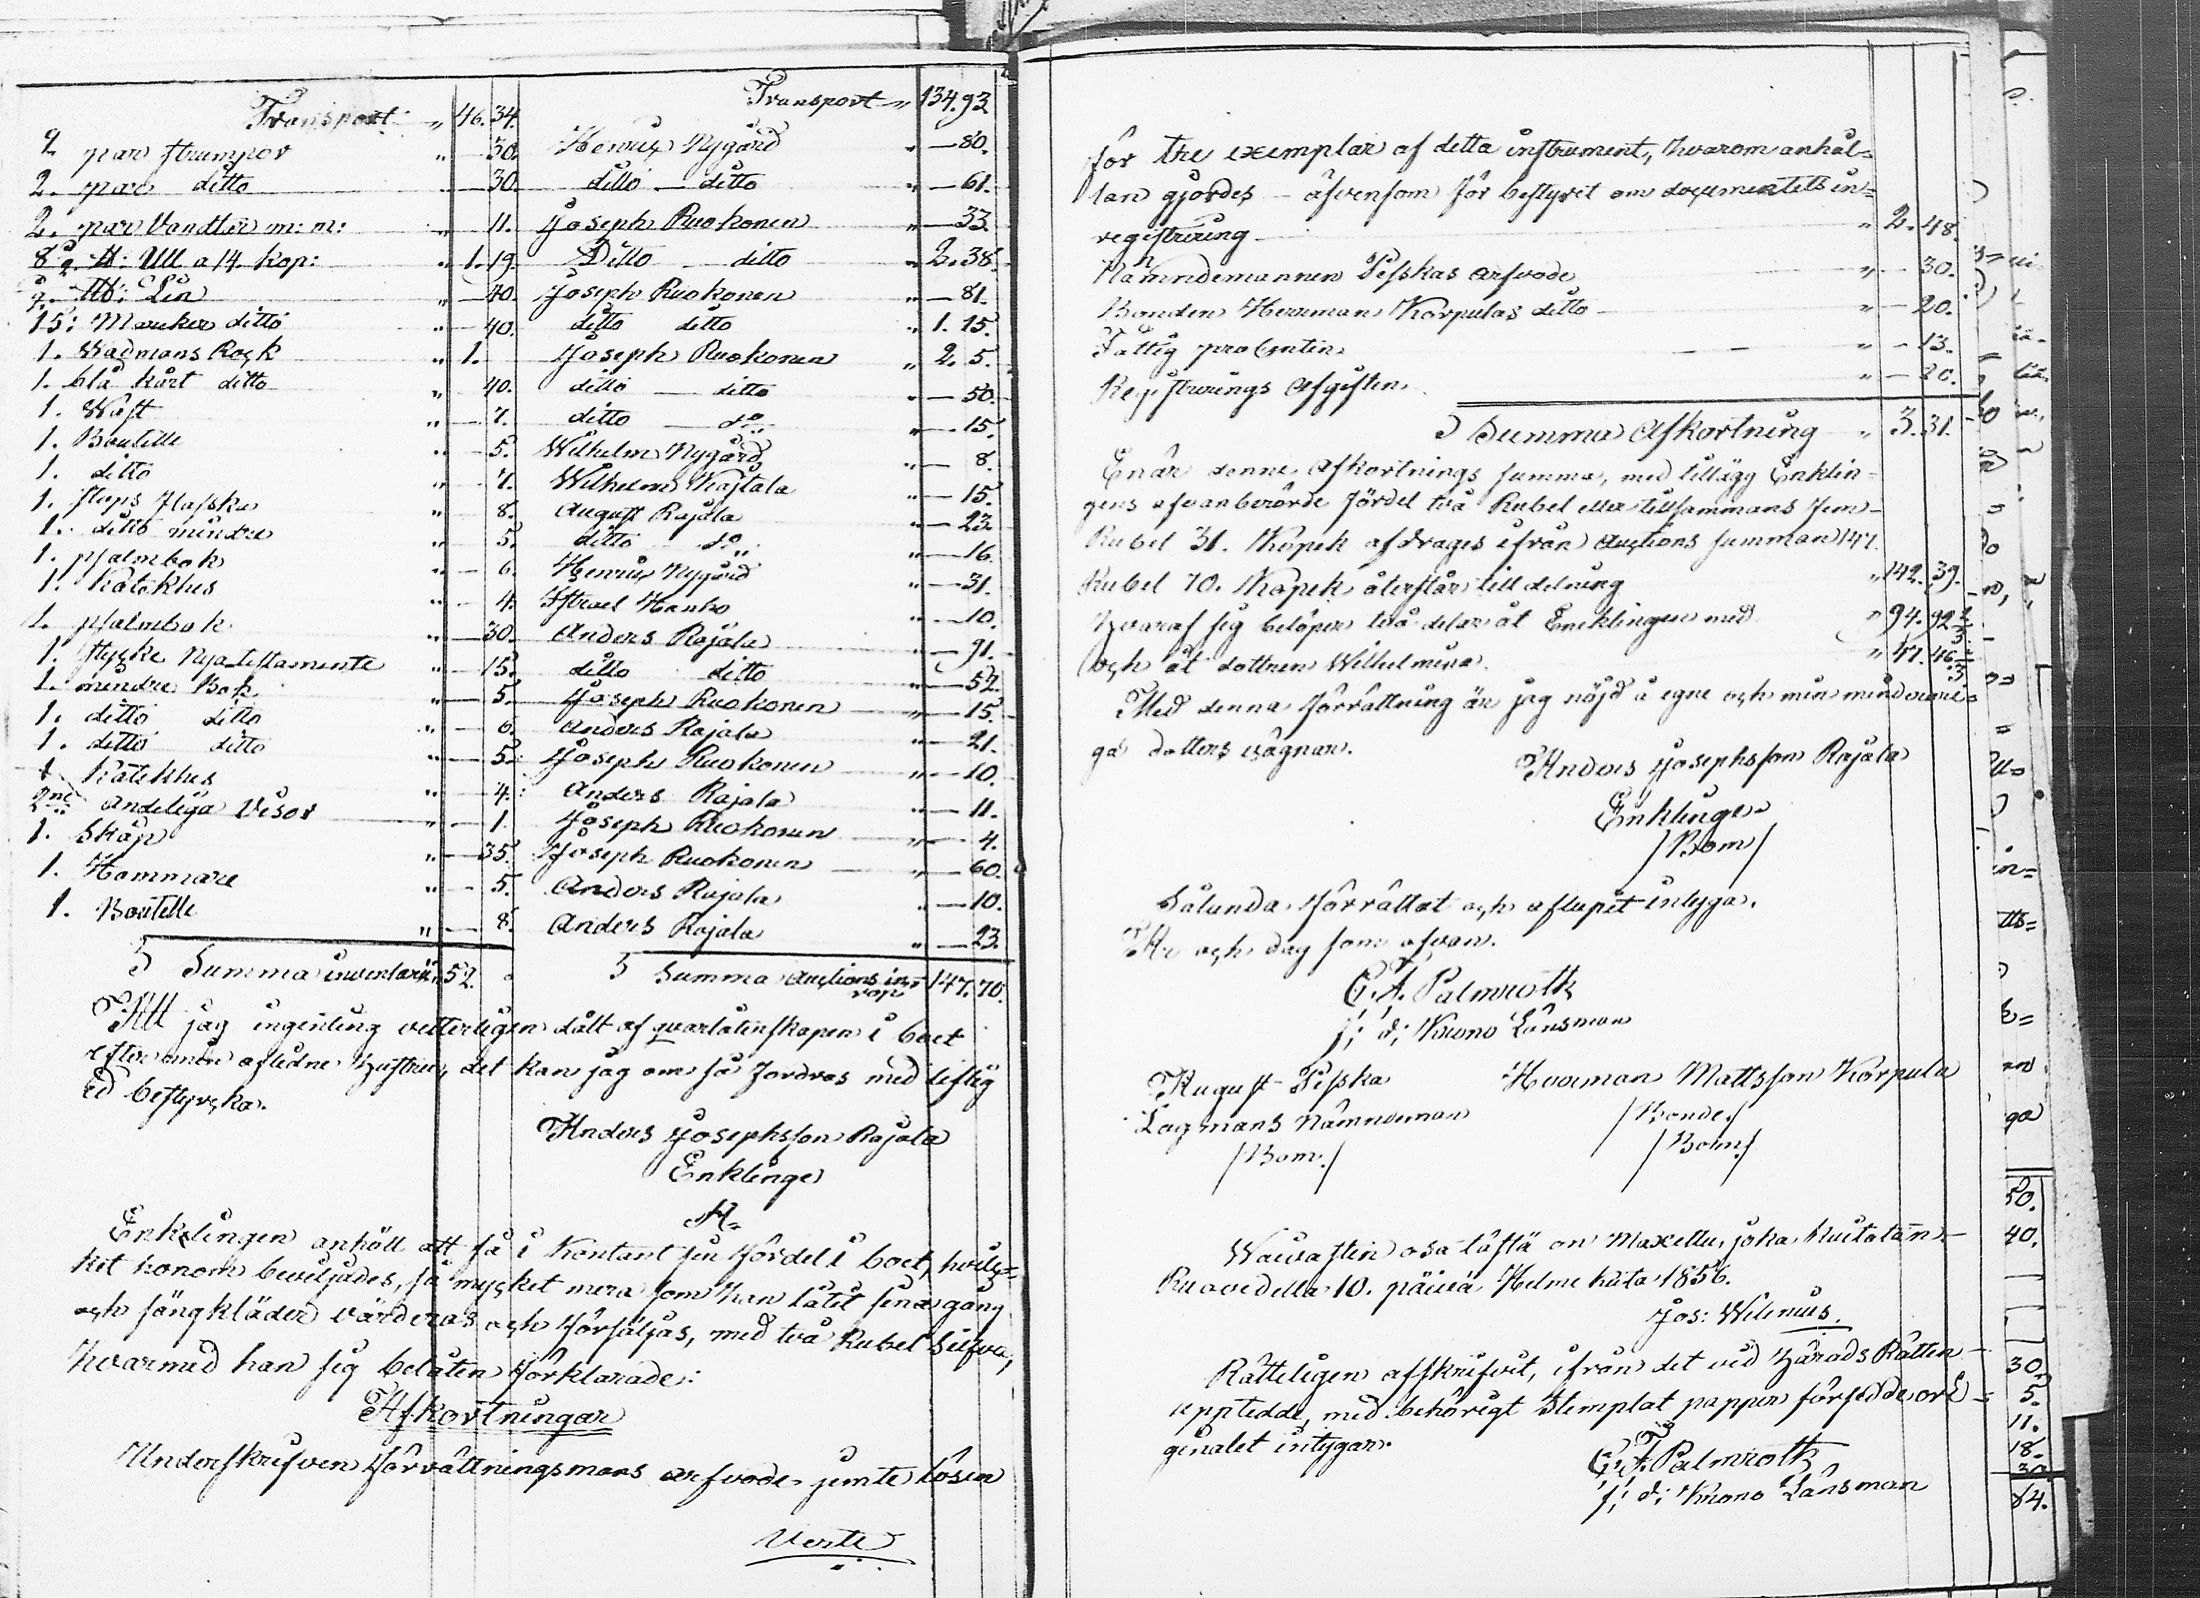 Transport „ 46. 34. Transport „ 134. 93
2 par strumpor „ — 30. Henric Nygård „ — 80.
2. par ditto „ — 30 ditto — ditto „ — 61.
2. par Vandtar m: m: „ — 11. Joseph Ruokonen „ — 33.
8½ ℔: Ull a 14. kop: „ 1. 19. Ditto — ditto „ 2. 38.
℔: Lin „ — 40. Joseph Ruokonen „ — 81.
15: Marker ditto „ — 40. ditto ditto „ 1. 15.
1. Wadmans Rock „ 1. Joseph Ruokonen „ 2. 5.
1. blå kort ditto „ 40. ditto — ditto „ — 50.
1. Wäst „ — 7. ditto — do „ — 15.
1. Boutille „ — 5. Wilhelm Nygård „ — 8.
1. ditto „ — 7. Wilhelm Kastala „ — 15.
1. stops flaska „ 8. August Rajala „ — 23
1. ditto mindre „ 5. ditto do „ — 16.
1. psalmbok „ — 6. Henric Nygård „ — 31.
1. Katekhes „ — 4. Israel Hanho „ — 10.
1. psalmbok „ — 30. Anders Rajala „ — 91.
1. stycke Nya testamente „ — 15. ditto ditto „ — 52.
1. mindre Bok „ — 5. Joseph Ruokonen „ — 15.
1. ditto ditto „ — 6. Anders Rajala „ — 21.
1. ditto ditto „ — 5. Joseph Ruokonen „ — 10.
1 Katekhes „ — 4. Anders Rajala „ — 11.
2ne andeliga Visor „ — 1. Joseph Ruokonen „ — 4.
1. Skåp „ — 35. Joseph Ruokonen „ — 60.
1. Hammare „ — 5. Anders Rajala „ — 10.
1. Boutelle „ — 8. Anders Rajala „ — 23.
Summa inventarii 52. Summa Auctions in- 147. 70.
rop
Att jag ingenting vetterligen dålt af qvarlåtenskapen i boet
efter min aflidne hustru, det kan jag om så fordras med liflig
ed bestyrcka.
Anders Josephsson Rajala
Enklinge
Enklingen anhöll att få i kontant sin fördel i boet, hvilc-
ket honom beviljades, så mycket mera som han låtit sina gång
och sängkläder värderas och försäljas, med två Rubel Silfver,
hvarmed han sig belåten förklarade:
Afkortningar
Underskrifven Förrättningsmans arfvode jemte lösen
Verte
för tre exemplar af detta instrument, hvarom anhål-
lan gjordes – äfvensom för bestyret om documentets in-
registrering „ 2. 48.
Nämndemannen Pesskas arfvode „ — 30.
Bonden Herman Korpulas ditto „ — 20.
Fattig procenten „ — 13.
Registrerings Afgiften „ — 20.
Summa Afkortning „ 3. 31.
Enär denne Afkortnings summa, med tillägg Enklin-
gens ofvanberörde fördel två Rubel eller tillsammans fem
Rubel 31. Kopek afdrages ifrån Auctions summan 147.
Rubel 70. Kopek återstår till delning „ 142. 39.
hvaraf sig belöper två delar åt Enklingen med „ 94. 92⅔
och åt dottren Wilhelmina „ 47. 46⅓
Med denna förrättning är jag nöjd å egne och min minderåri-
ga dotters vägnar.
Anders Josephsson Rajala
Enklinge
/Bom/
Sålunda förrättat och aflupit intyga.
År och dag som ofvan.
G. F. Palmroth
f: d: Krono Länsman
August Pesska Herman Mattsson Korpula
Lagmans Nämndeman /Bonde/
/Bom:/ /Bom:/
Waivastin osa tästä on Maxettu, joka kuitatan
Ruovedella 10. päivä Helme kuuta 1856.
Jos: Wilenius.
Rätteligen affskrifvit, ifrån det vid Härads Rätten
upptedde, med behörigt Stemplat papper försedde ori-
ginalet intygar.
G. F. Palmroth
f: d: Krono Länsman
50.
40.
30.
5.
11.
18.
30
84.